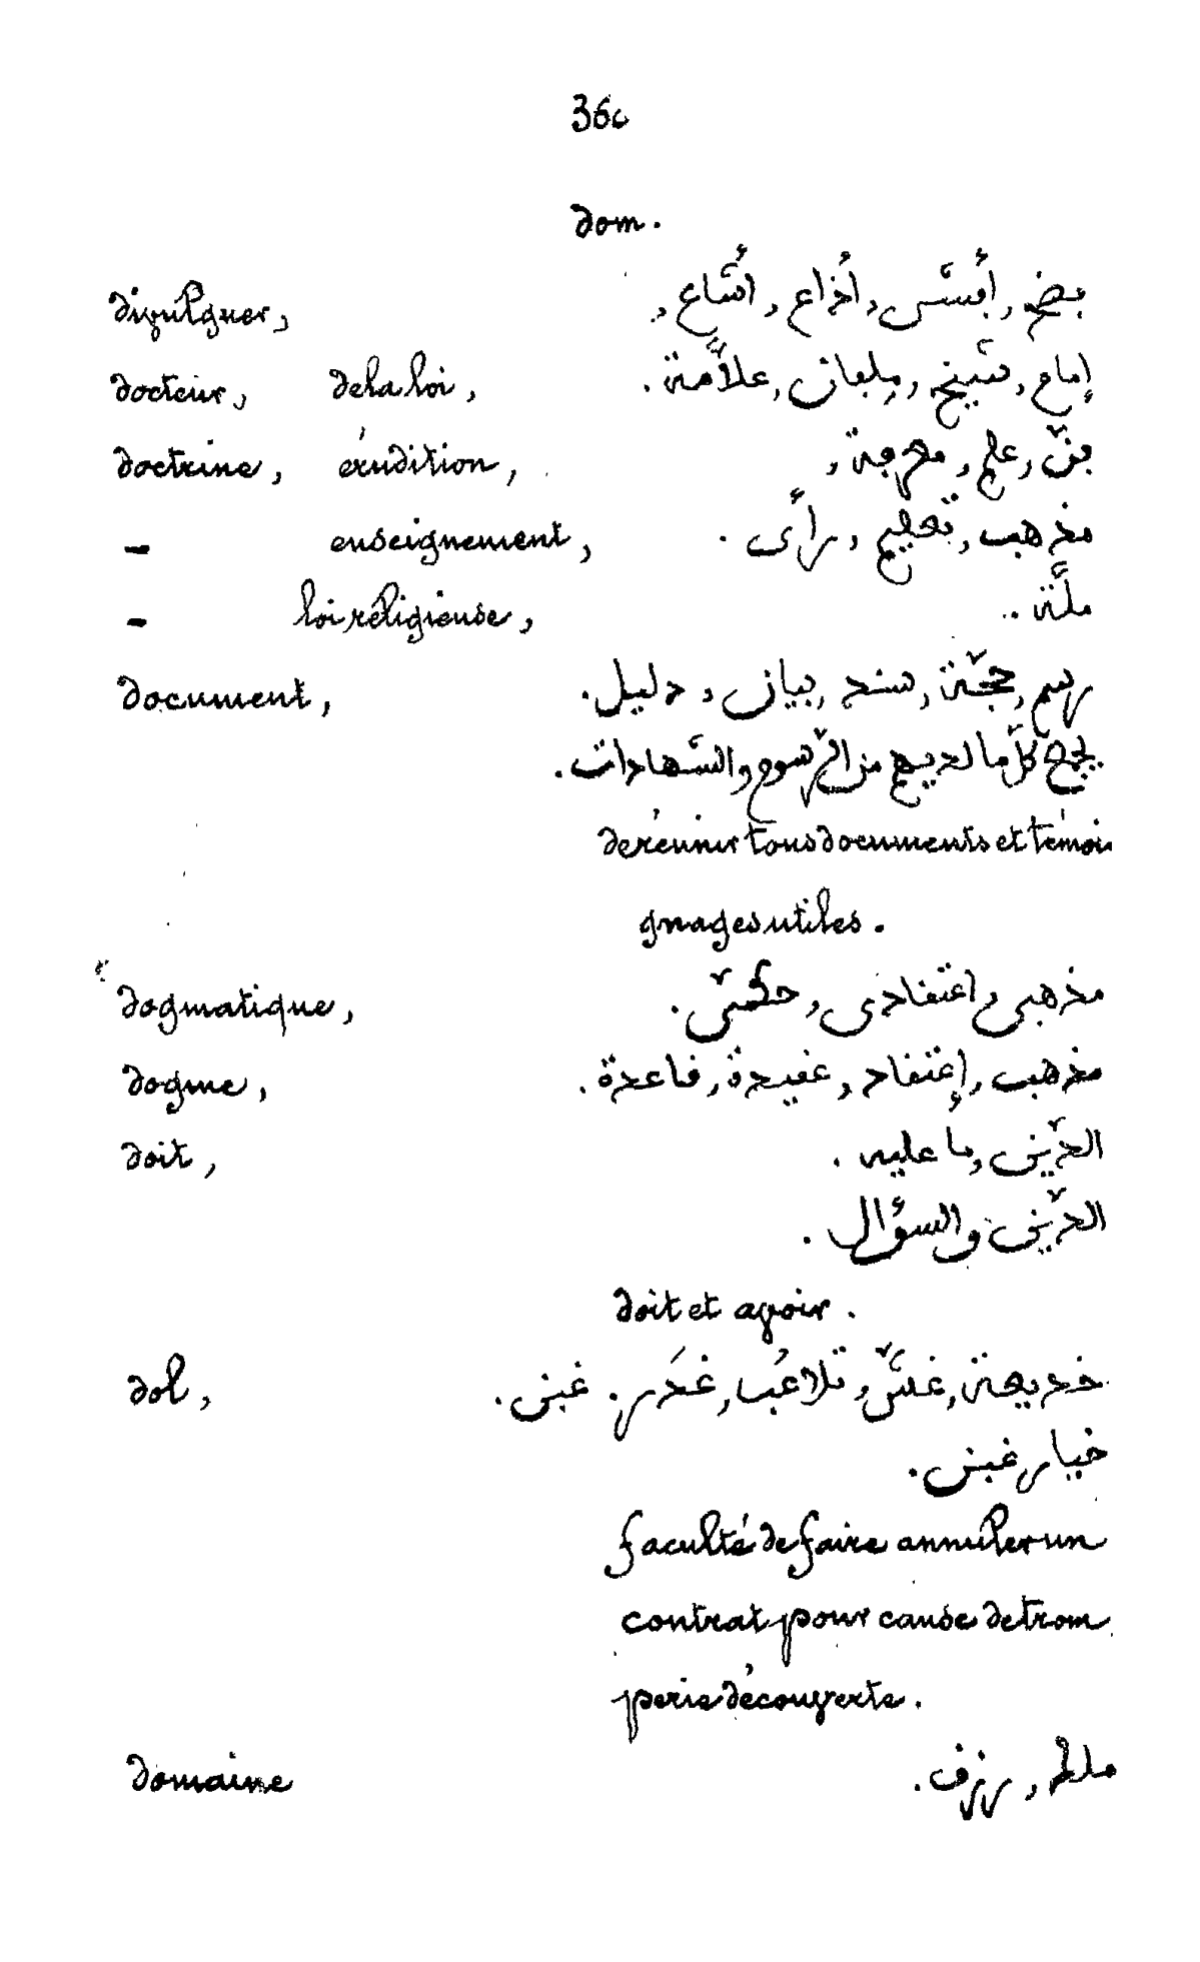 360
dom.
divulguer, فضح, أفشى, أذاع, أشاع,
docteur, de la loi, إمام, شيخ, ملفان, علاّمة.
doctrine, érudition, فنّ, علم, معرفة,
— enseignement, مذهب, تعليم, رأى.
— loi réligieuse, ملّة..
document, رسم, حجّة, سند, بيان, دليل.
يجمع كلّ ما لديهم من الرّسوم والشّهادات.
de réunir tous documents et témoi
gnages utiles.
dogmatique, مذهبى, اعتقادى, حكمىّ.
dogme, مذهب, إعتقاد, عقيدة, قاعدة.
doit, الدّين, ما عليه.
الدّين والسؤال.
doit et avoir.
dol, خديعة, غشّ, تلاعُب, غَدر. غبن.
خيار غبن.
faculté de faire annuler un
contrat pour cause de trom
perie découverte.
domaine ملك, رزق.